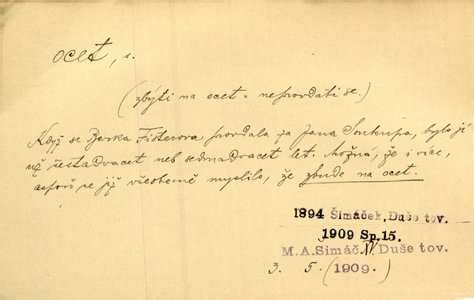 ocet, s.
(zbýti na ocet = neprovdati se.)
Když se Barka Fišterova provdala za Jana Soukupa, bylo jí
už šestadvacet neb sedmadvacet let. Možná, že i více,
aspoň se již všeobecně myslilo, že zbude na ocet.
1894 Šimáček, Duše tov.
1909 Sp. 15.
M. A. Šimáč. IV. Duše tov.
3. 5. (1909.)